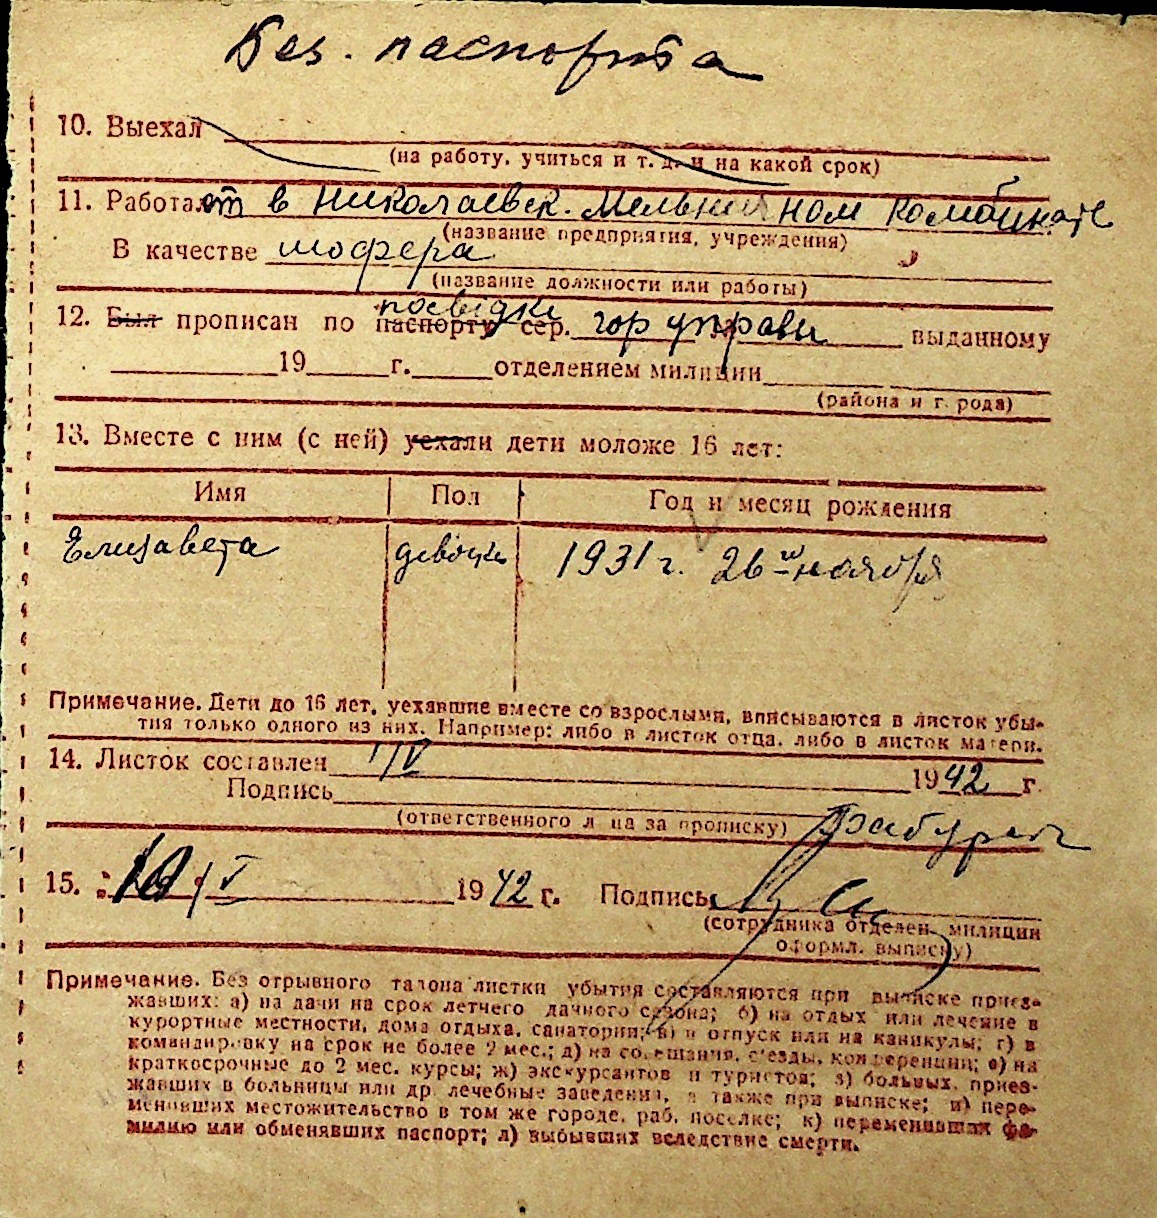 Без. паспорта
10. Выехал
(на работу, учиться и т. д. и на какой срок)
11. Работает в Николаевск. Мельничном комбинате
(название предприятия, учреждения)
В качестве шофера
(название должности или работы)
посвідки
12. Был прописан по паспорту сер. гор управи выданному
19 г. отделением милиции
(района и города)
13. Вместе с ним (с ней) уехали дети моложе 16 лет:
Имя Пол Год и месяц рождения
Елизавета девочка 1931 г. 26 ноября
Примечание. Дети до 16 лет, уехавшие вместе со взрослыми, вписываются в листок убы-
тия только одного из них. Например: либо в листок отца, либо в листок матери.
14. Листок составлен IV 1942 г.
Подпись
(ответственного лица за прописку)
15. V 1942 г. Подпись
(сотрудника отделен. милиции
оформл. выписку)
Примечание. Без отрывного талона листки убытия составляются при выписке приез-
жавших: а) на дачи на срок летнего дачного сезона; б) на отдых или лечение в
курортные местности, дома отдыха, санатории; в) в отпуск или на каникулы; г) в
командировку на срок не более 2 мес.; д) на совещания, съезды, конференции; е) на
краткосрочные до 2 мес. курсы; ж) экскурсантов и туристов; з) больных, приез-
жавших в больницы или др. лечебные заведения, а также при выписке; и) пере-
менивших местожительство в том же городе, раб. поселке; к) переменивших фа-
милию или обменявших паспорт; л) выбывших вследствие смерти.